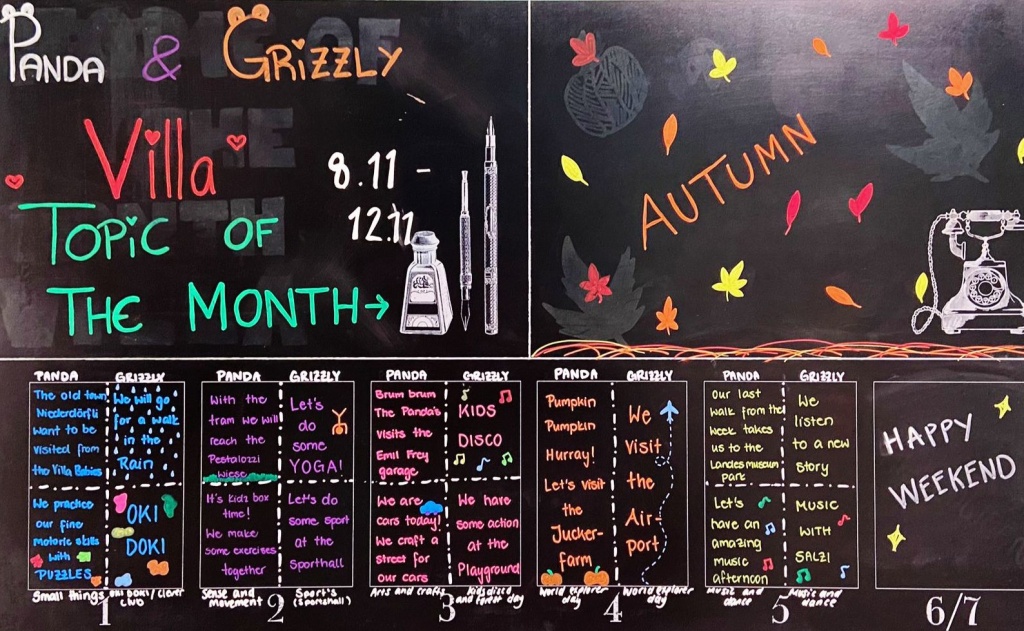 PANDA & GRiZZLY
Villa
TOPiC OF
THE MONTH→
8.11 -
12.11
AUTUMN
PANDA
GRIZZLY
The old town
Niederdörfli
want to be
visited from
the Villa Babies
We will go
for a walk
in the
Rain
We practice
our fine
motoric skills
with
PUZZLES
OKI
DOKI
Small things
OKI DOKI / clever
club
1
PANDA
GRIZZLY
With the
tram we will
reach the
Pestalozzi
Wiese
Let's
do
some
YOGA!
It's kidz box
time!
We make
some exercises
together
Let's do
some sport
at the
Sporthall
Sense and
movement
Sport's
(sportshall)
2
PANDA
GRIZZLY
Brum brum
The Panda's
visits the
Emil Frey
garage
KIDS
DISCO
We are
cars today!
We craft a
street for
our cars
We have
some action
at the
Playground
Arts and crafts
kids disco
and forest day
3
PANDA
GRIZZLY
Pumpkin
Pumpkin
Hurray!
Let's visit
the
Jucker-
farm
We
visit
the
Air-
port
World explorer
day
World explorer
day
4
PANDA
GRIZZLY
Our last
walk from the
week takes
us to the
Landesmuseum
park
We
listen
to a new
story
Let's
have an
amazing
music
afternoon
MUSIC
WITH
SALZI
Music and
dance
Music and
dance
5
HAPPY
WEEKEND
6/7